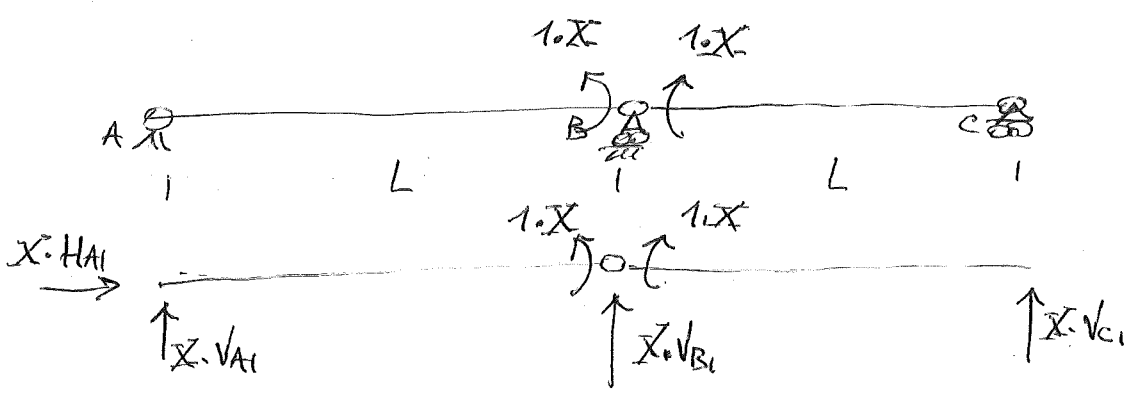 1·X 1·X
A B C
L L
1·X 1·X
X·HA1
X·VA1 X·VB1 X·VC1